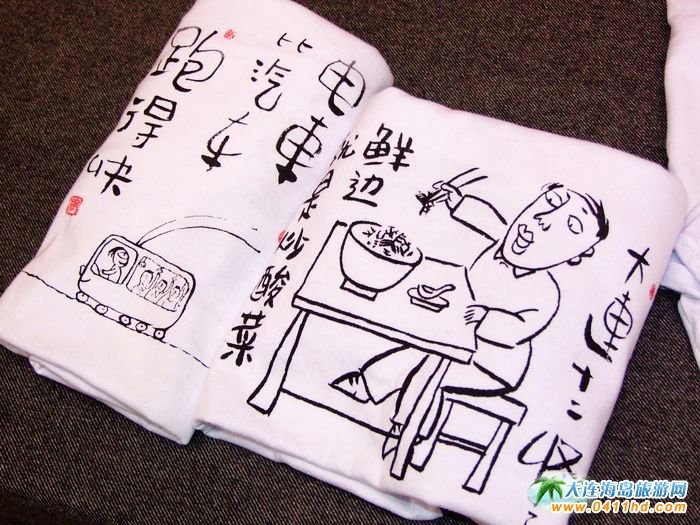 电車
比汽车
跑得快
大連十二
鲜边
炒酸菜
大连海岛旅游网
www.0411hd.com